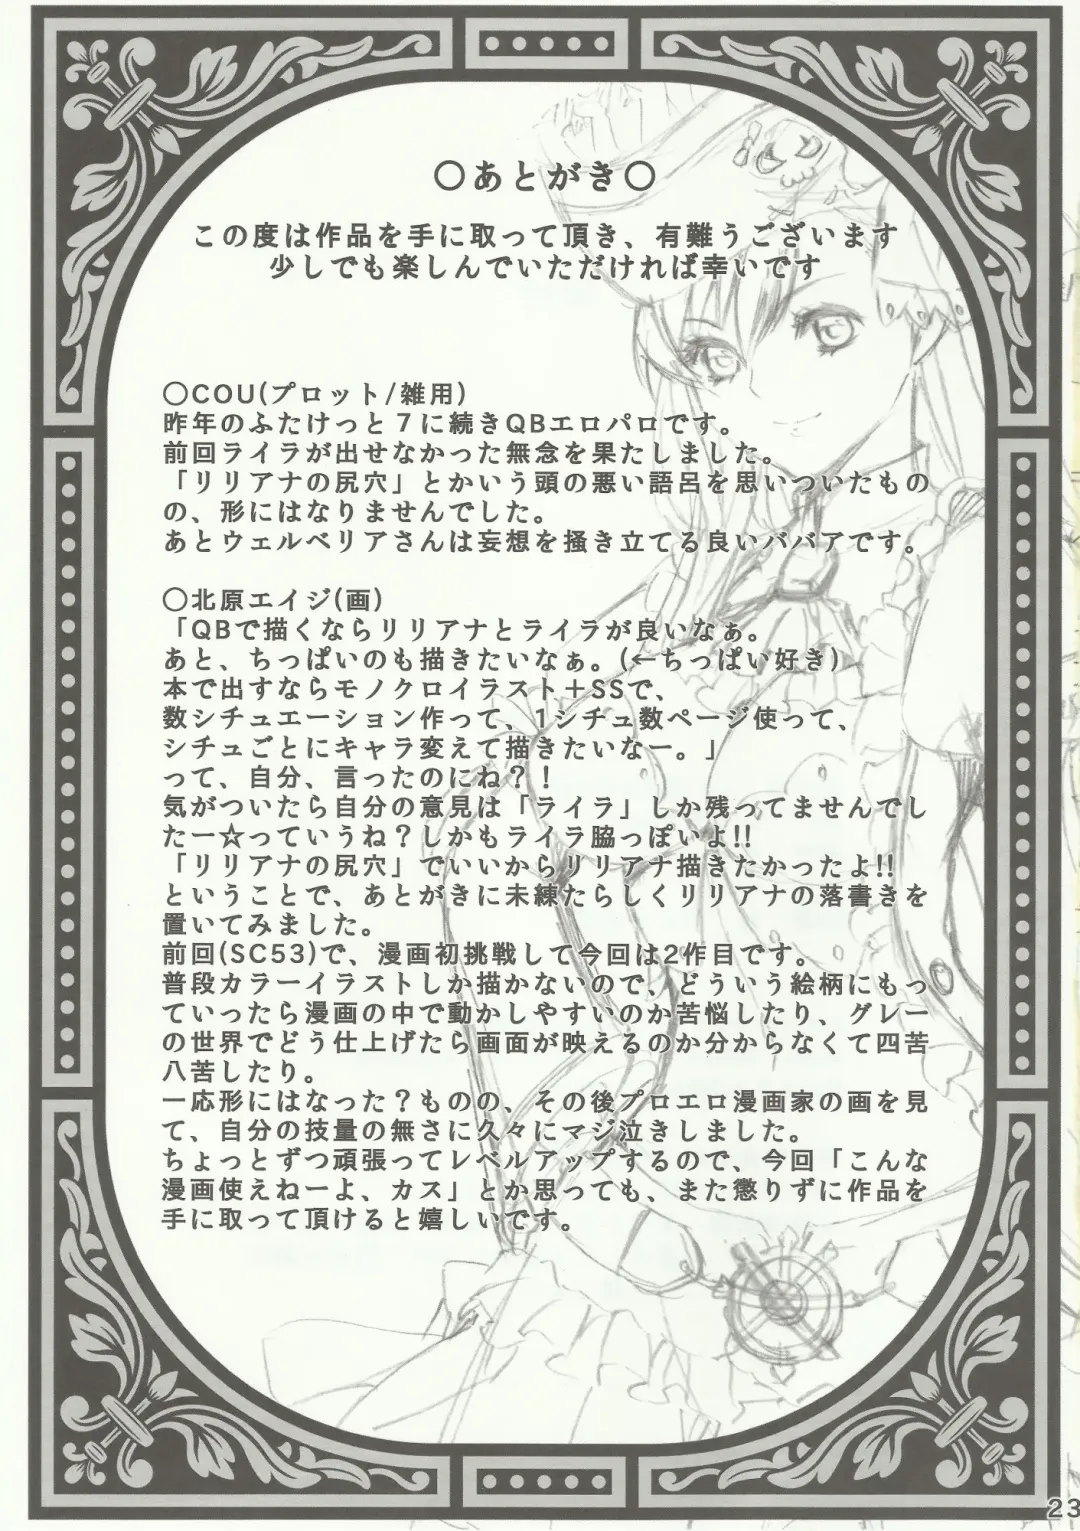 〇あとがき〇
この度は作品を手に取って頂き、有難うございます
少しでも楽しんでいただければ幸いです
〇COU(プロット/雑用)
昨年のふたけっと７に続きQBエロパロです。
前回ライラが出せなかった無念を果たしました。
「リリアナの尻穴」とかいう頭の悪い語呂を思いついたもの
の、形にはなりませんでした。
あとウェルベリアさんは妄想を掻き立てる良いババアです。
〇北原エイジ(画)
「QBで描くならリリアナとライラが良いなぁ。
あと、ちっぱいのも描きたいなぁ。(←ちっぱい好き)
本で出すならモノクロイラスト＋SSで、
数シチュエーション作って、1シチュ数ページ使って、
シチュごとにキャラ変えて描きたいなー。」
って、自分、言ったのにね？！
気がついたら自分の意見は「ライラ」しか残ってませんでし
たー☆っていうね？しかもライラ脇っぽいよ!!
「リリアナの尻穴」でいいからリリアナ描きたかったよ!!
ということで、あとがきに未練たらしくリリアナの落書きを
置いてみました。
前回(SC53)で、漫画初挑戦して今回は2作目です。
普段カラーイラストしか描かないので、どういう絵柄にもっ
ていったら漫画の中で動かしやすいのか苦悩したり、グレー
の世界でどう仕上げたら画面が映えるのか分からなくて四苦
八苦したり。
一応形にはなった？ものの、その後プロエロ漫画家の画を見
て、自分の技量の無さに久々にマジ泣きしました。
ちょっとずつ頑張ってレベルアップするので、今回「こんな
漫画使えねーよ、カス」とか思っても、また懲りずに作品を
手に取って頂けると嬉しいです。
23